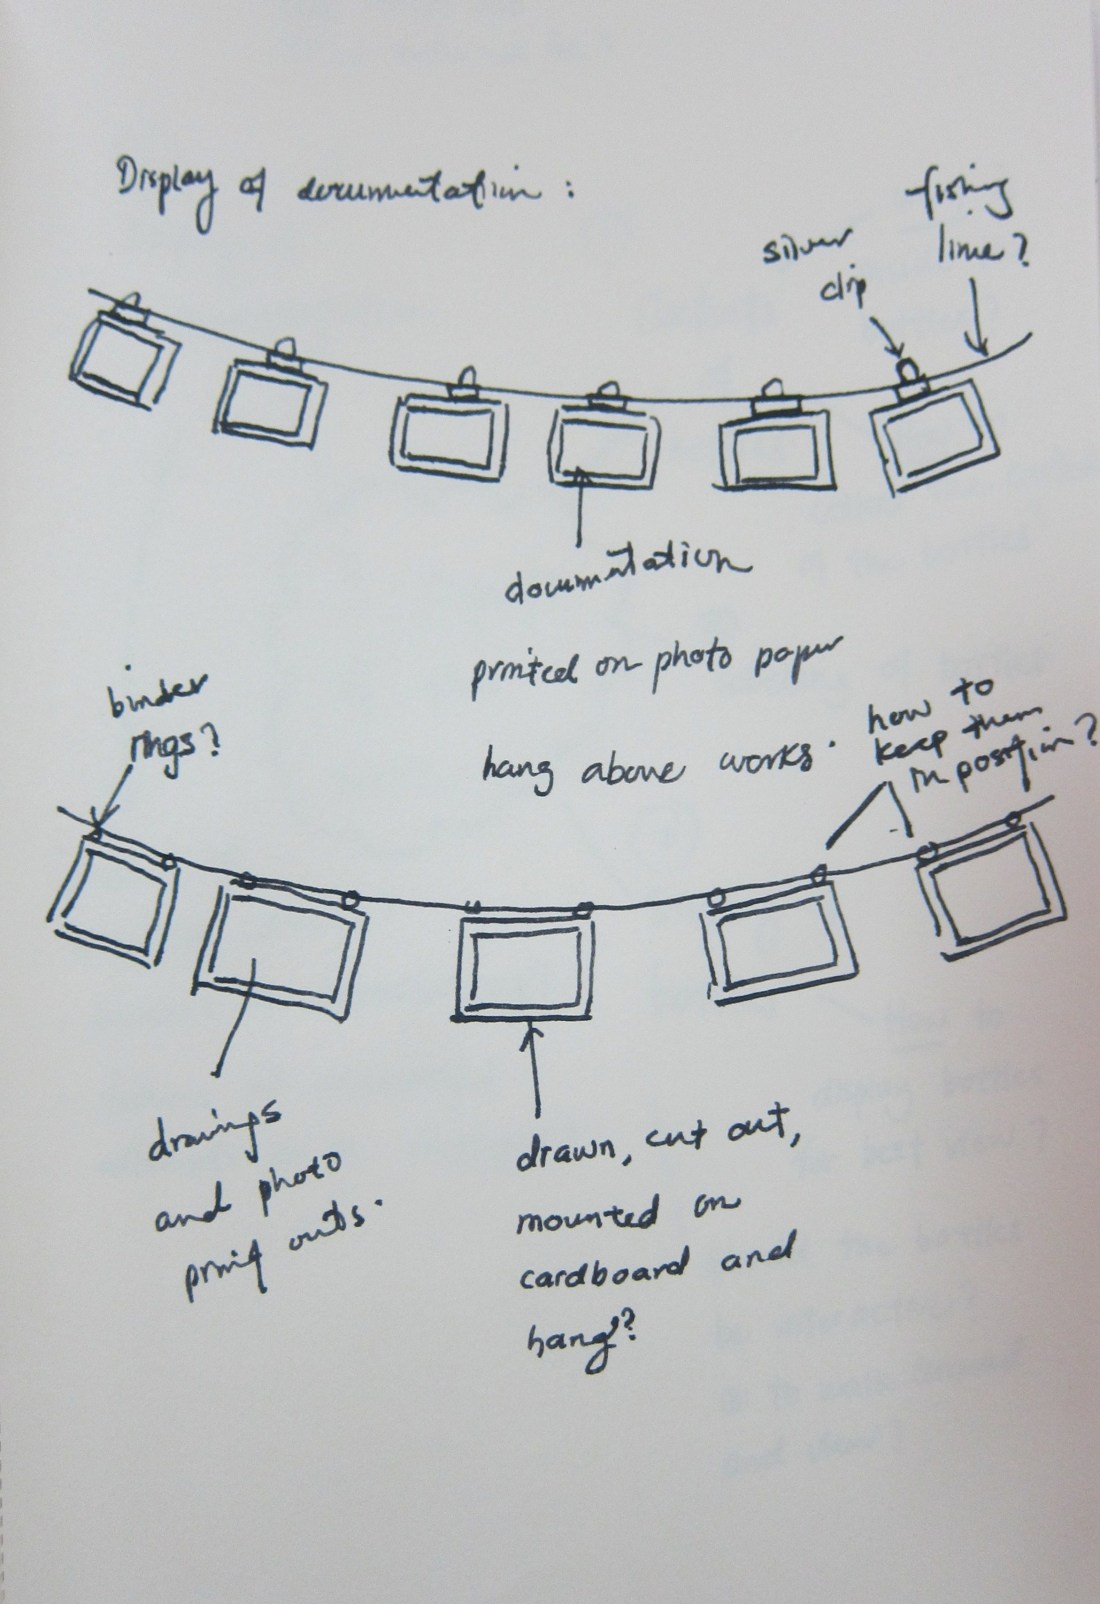 Display of documentation :
fishing
line?
silver
clip
documentation
printed on photo paper
hang above works.
binder
rings?
how to
keep them
in position?
drawings
and photo
print outs.
drawn, cut out,
mounted on
cardboard and
hang?